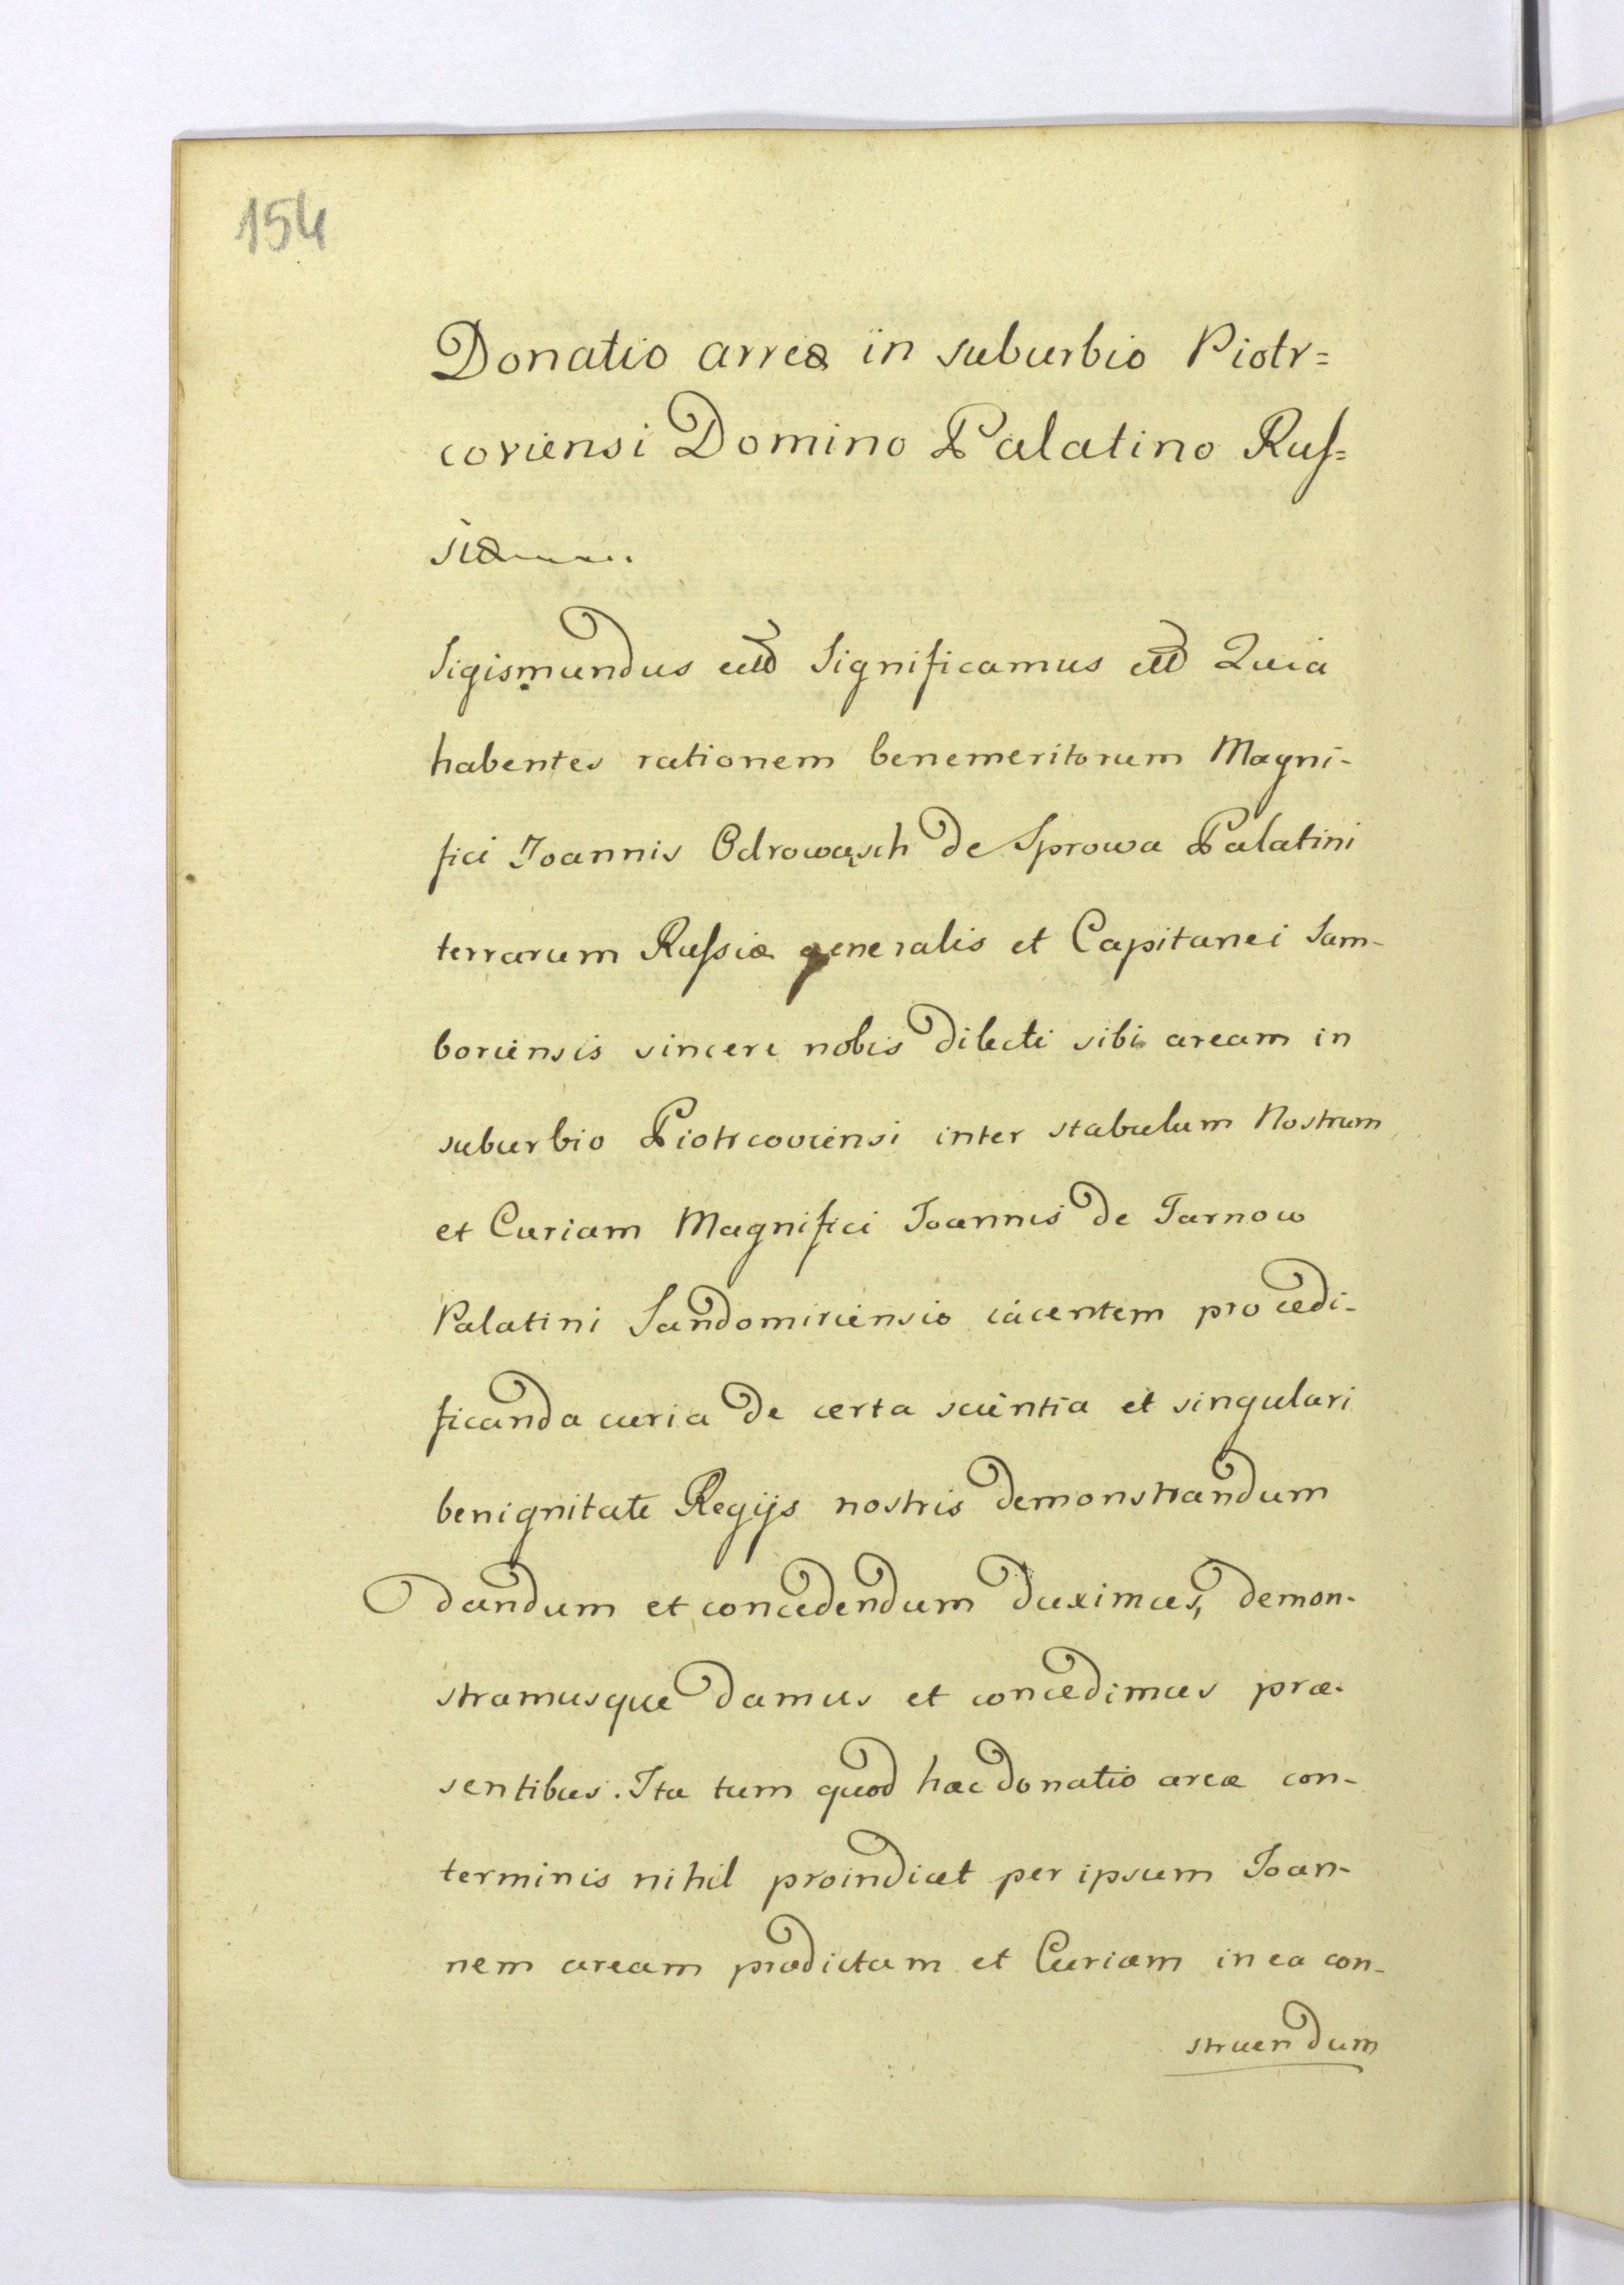 154
Donatio arreæ in suburbio Piotr=
coviensi Domino Palatino Rus=
siæ
Sigismundus etc Significamus etc Quia
habentes rationem benemeritorum Magni-
fici Joannis Odrowąsch de Sprowa Palatini
terrarum Russiæ generalis et Capitanei Sam-
boriensis sincere nobis dilecti sibi aream in
suburbio Piotrcoviensi inter stabulum Nostrum
et Curiam Magnifici Joannis de Tarnow
Palatini Sandomiriensis iacentem pro ædi-
ficanda curia de certa scientia et singulari
benignitate Regijs nostris demonstrandum
dandum et concedendum duximus, demon-
stramusque damus et concedimus præ-
sentibus. Ita tum quod hæc donatio areæ con-
terminis nihil proindicet per ipsum Joan-
nem aream prædictam et Curiam in ea con-
struendum